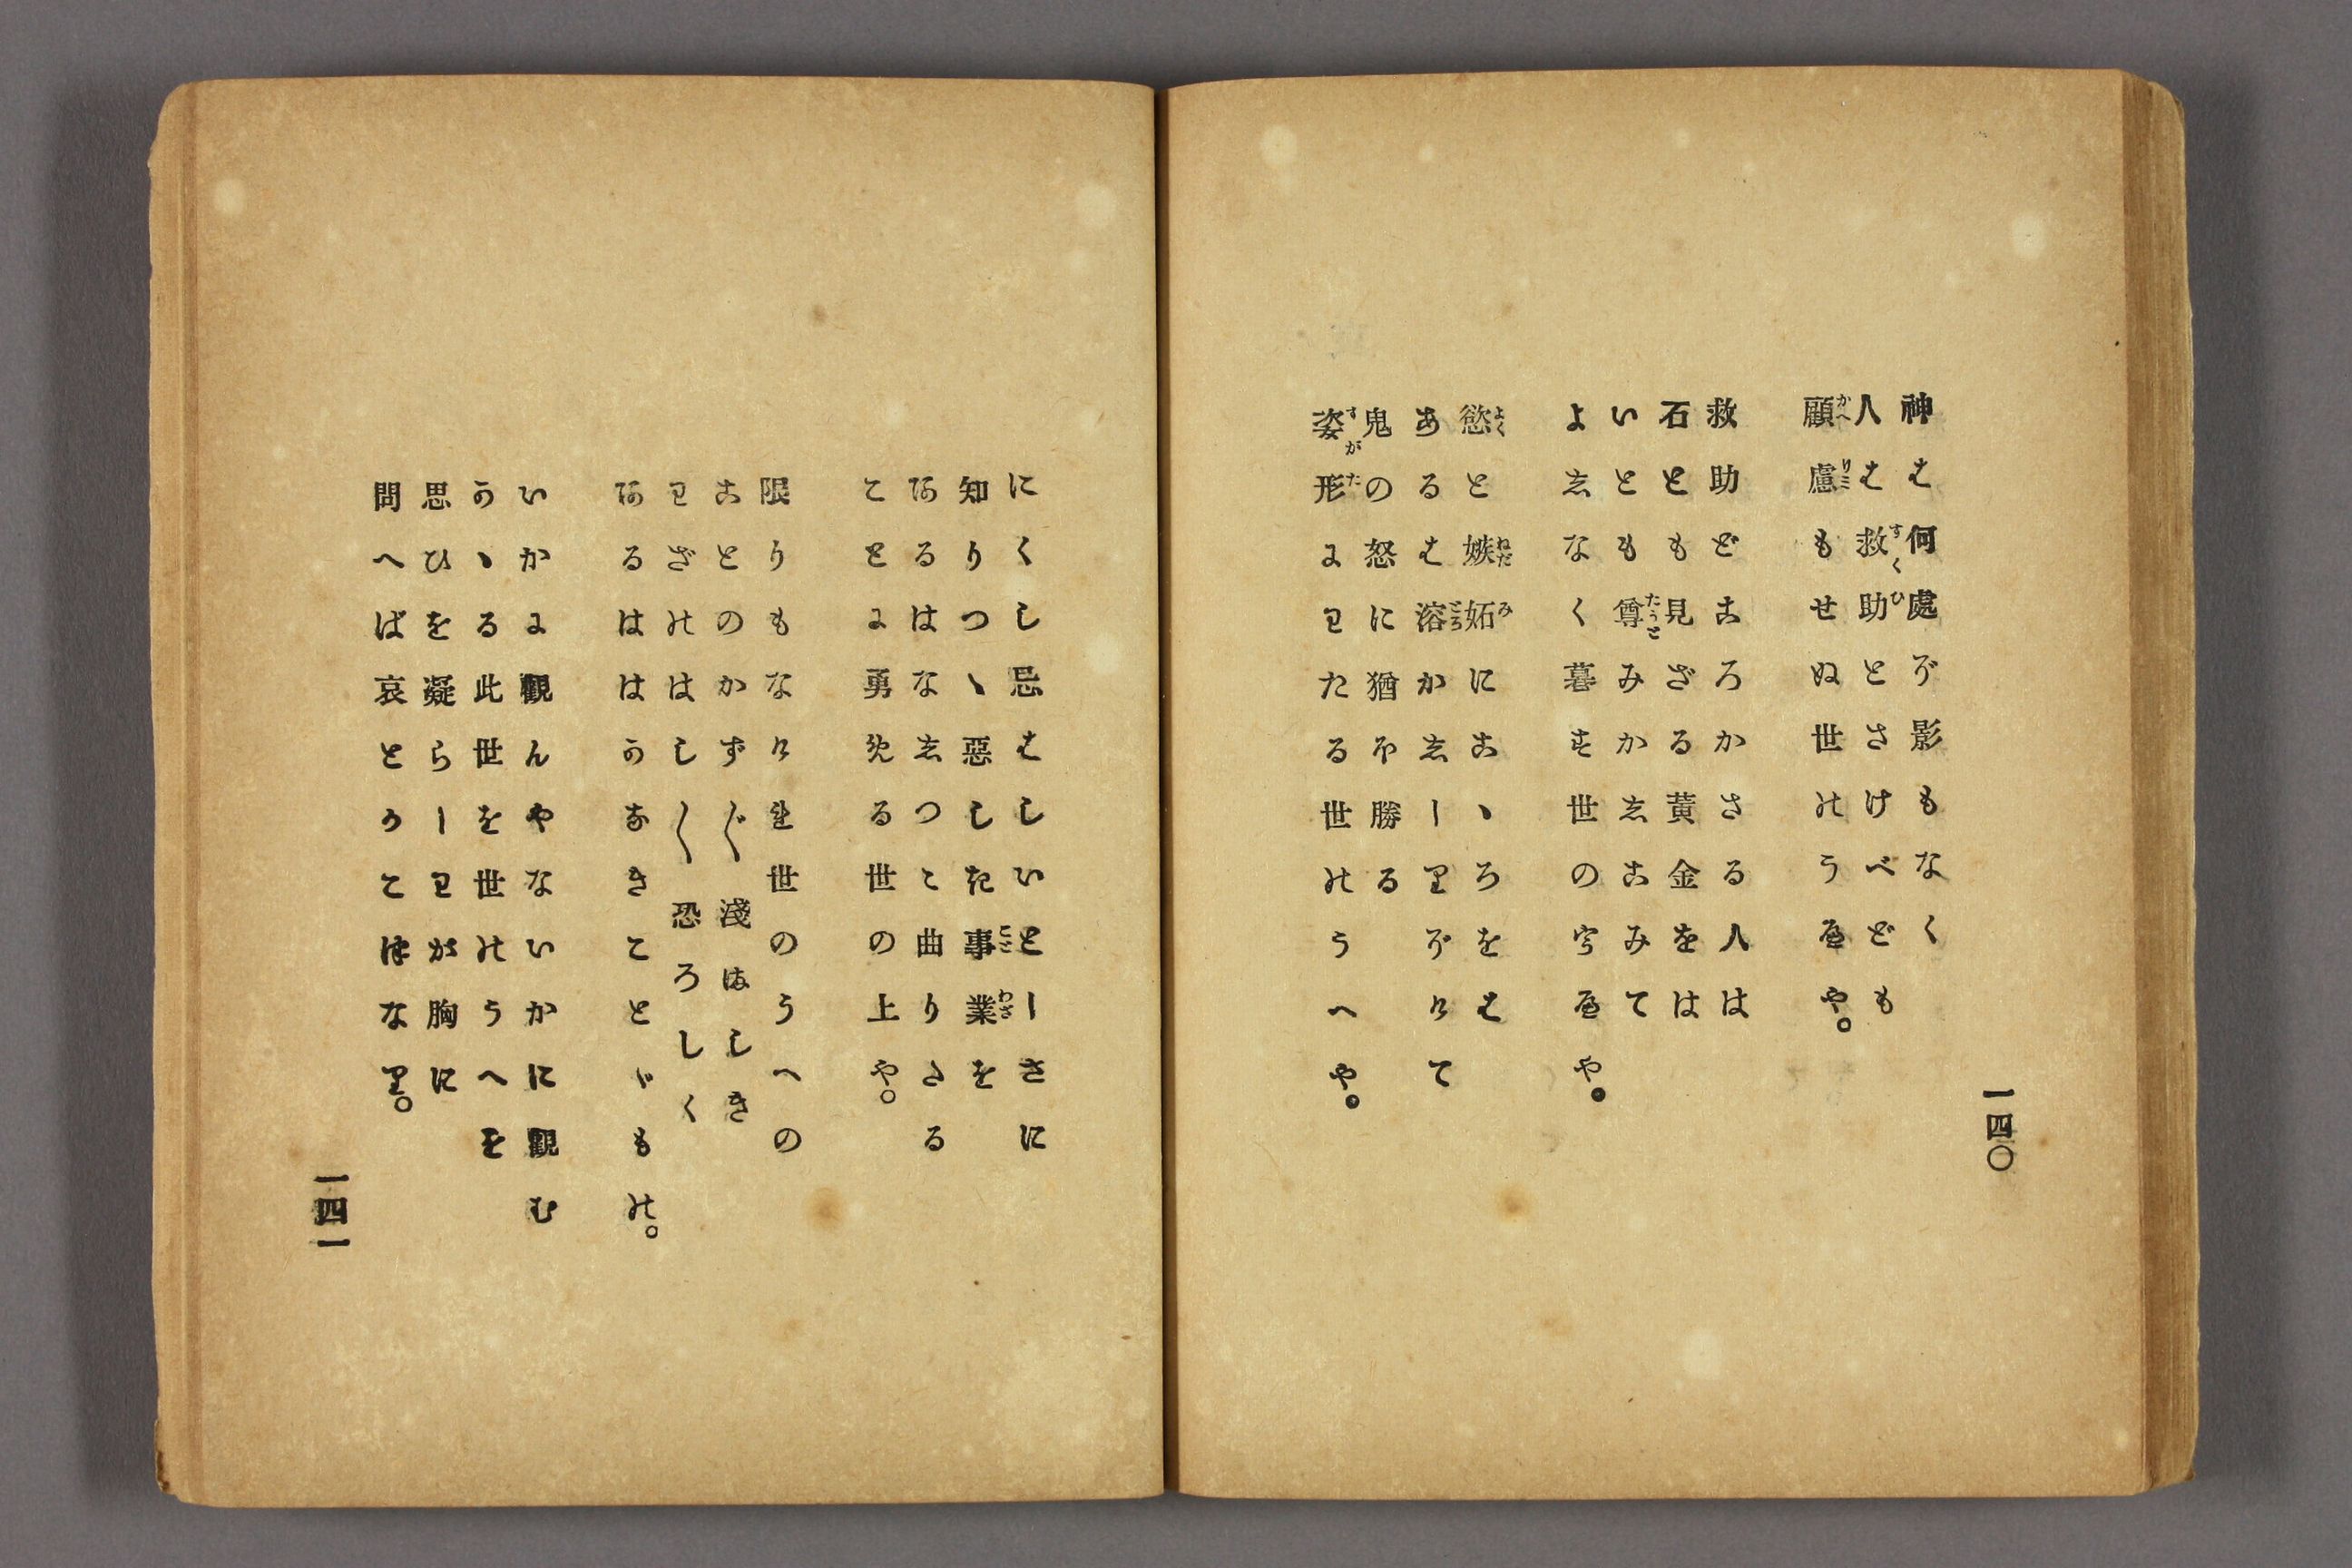 一四〇
神は何處ぞ影もなく
人は救助とさけべども
顧慮もせぬ世のうへや。
救助どころかさる人は
石とも見ざる黄金をは
いとも尊みかしこみて
よしなく暮す世の宇へや。
慾と嫉妬にこゝろをは
あるは溶かししりぞけて
鬼の怒に猶ほ勝る
姿形にわたる世のうへや。
にくし忌はしいとしさに
知りつゝ惡しき事業を
あるはなしつこ曲りたる
ことに勇める世の上や。
限りもなけれ世のうへの
ことのかず〴〵淺ましき
わざのはし〳〵恐ろしく
あるははかなきことゞもの。
いかに觀んやないかに觀む
かゝる此世を世のうへを
思ひを凝らしわが胸に
問へば哀とかこつなり。
一四一